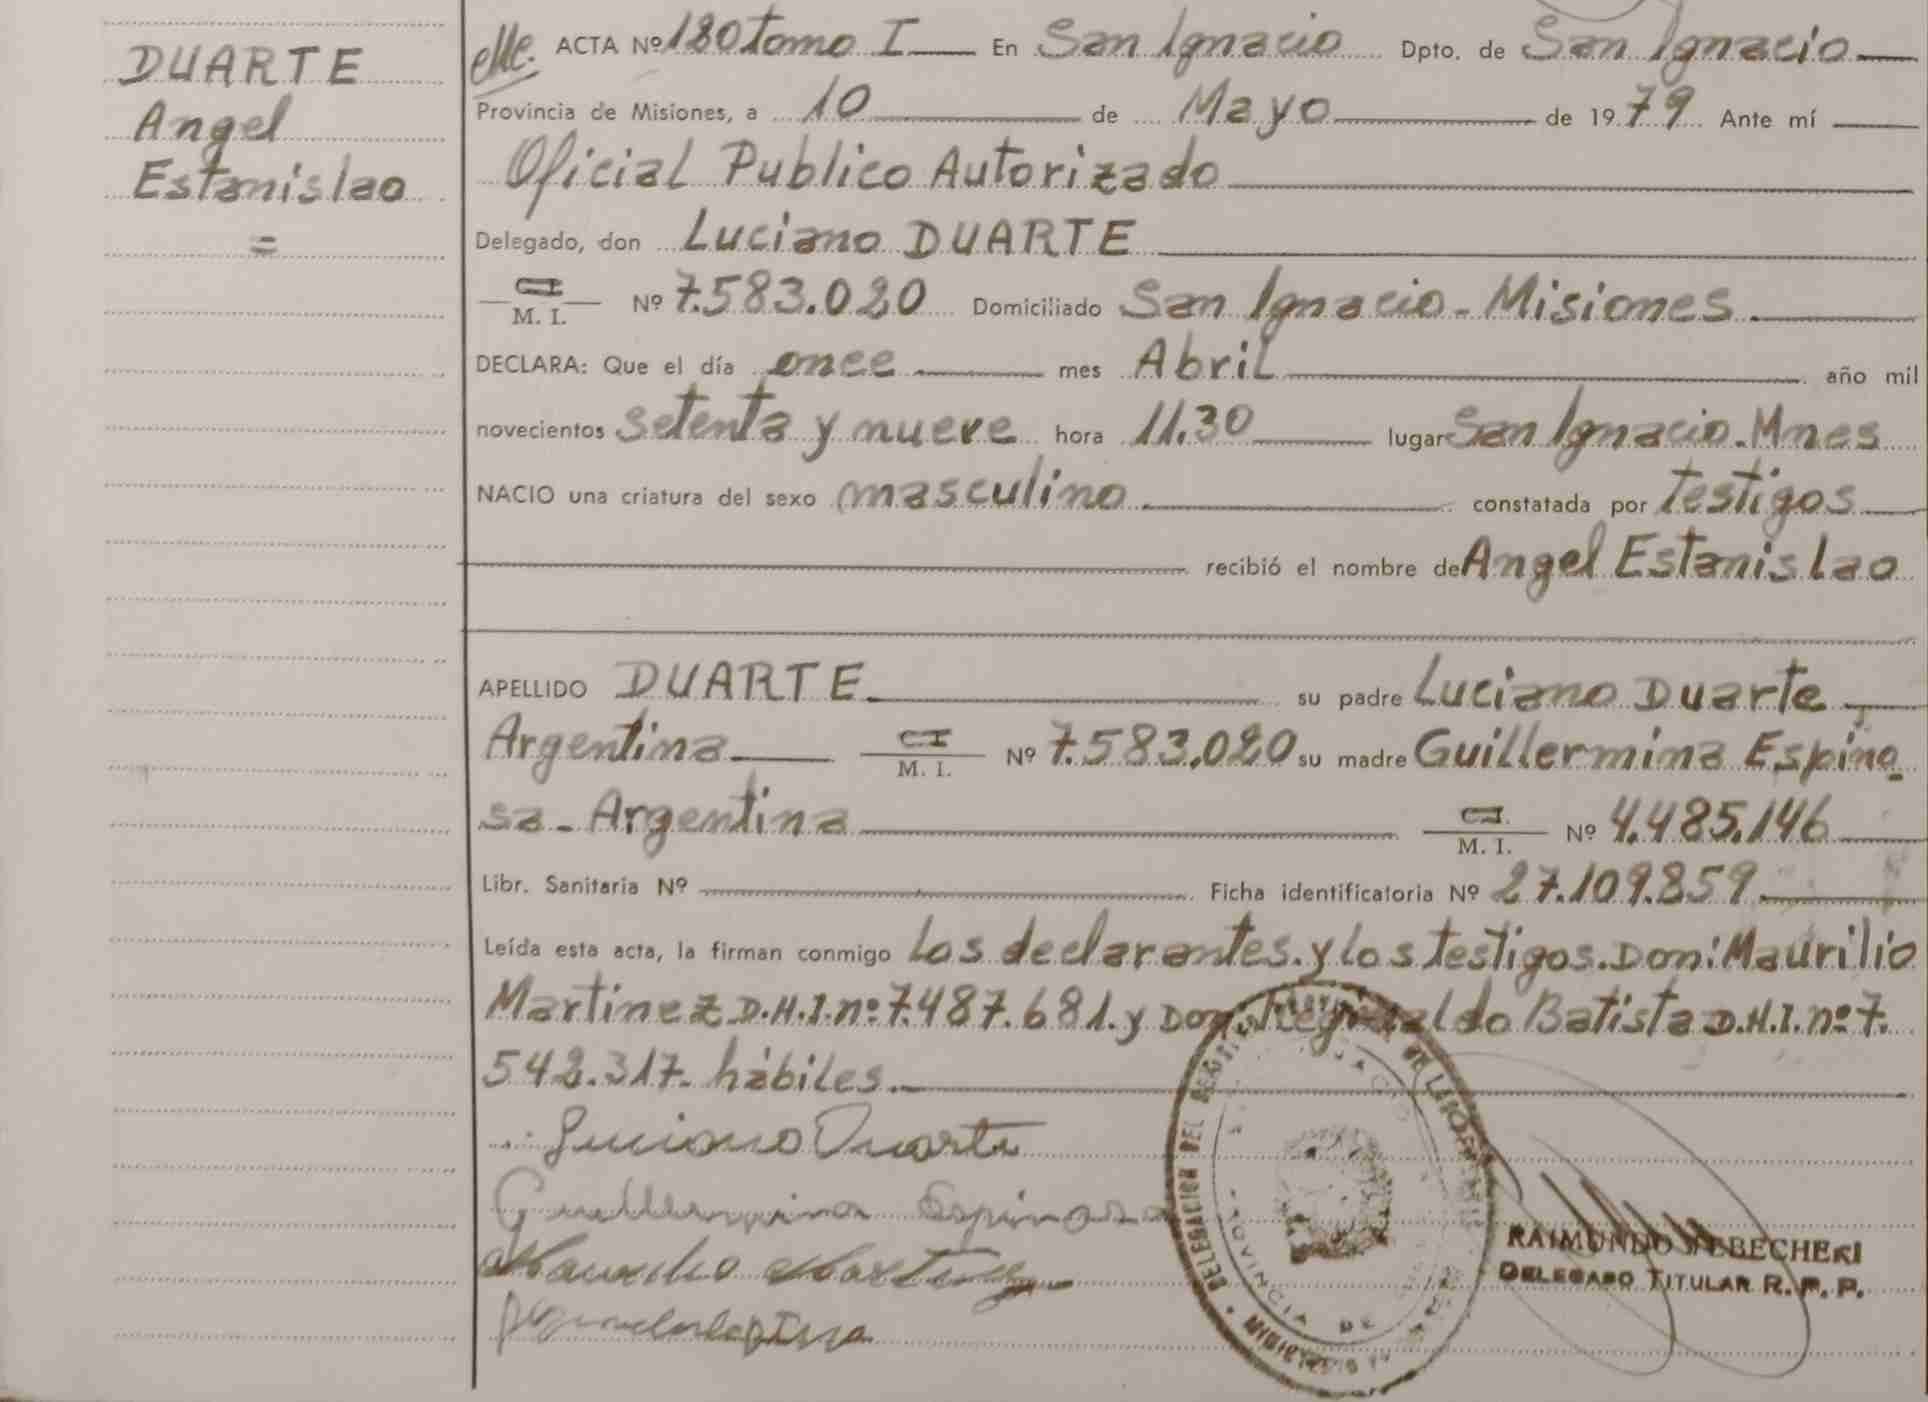 DUARTE
Angel
Estanislao
=
ACTA Nº 180 tomo I En San Ignacio Dpto. de San Ignacio
Provincia de Misiones, a 10 de Mayo de 1979 Ante mí
Oficial Publico Autorizado
Delegado, don Luciano DUARTE
CI
M. I. Nº 7.583.020 Domiciliado San Ignacio - Misiones
DECLARA: Que el día once mes Abril año mil
novecientos setenta y nueve hora 11.30 lugar San Ignacio. Mnes
NACIO una criatura del sexo masculino constatada por testigos
recibió el nombre de Angel Estanislao
APELLIDO DUARTE su padre Luciano Duarte
Argentina CI M. I. Nº 7.583.020 su madre Guillermina Espino
sa - Argentina CI. M. I. Nº 4.485.146
Libr. Sanitaria Nº Ficha identificatoria Nº 27.109.859
Leída esta acta, la firman conmigo los declarantes. y los testigos. Don: Maurilio
Martinez D.H.I. nº 7.487.681. y Don Batista D.H.I. nº 7.
542.317. hábiles.
Luciano Duarte
Guillermina Espinosa
DELEGACION DEL
PROVINCIA DE
RAIMUNDO
DELEGADO TITULAR R. P. P.